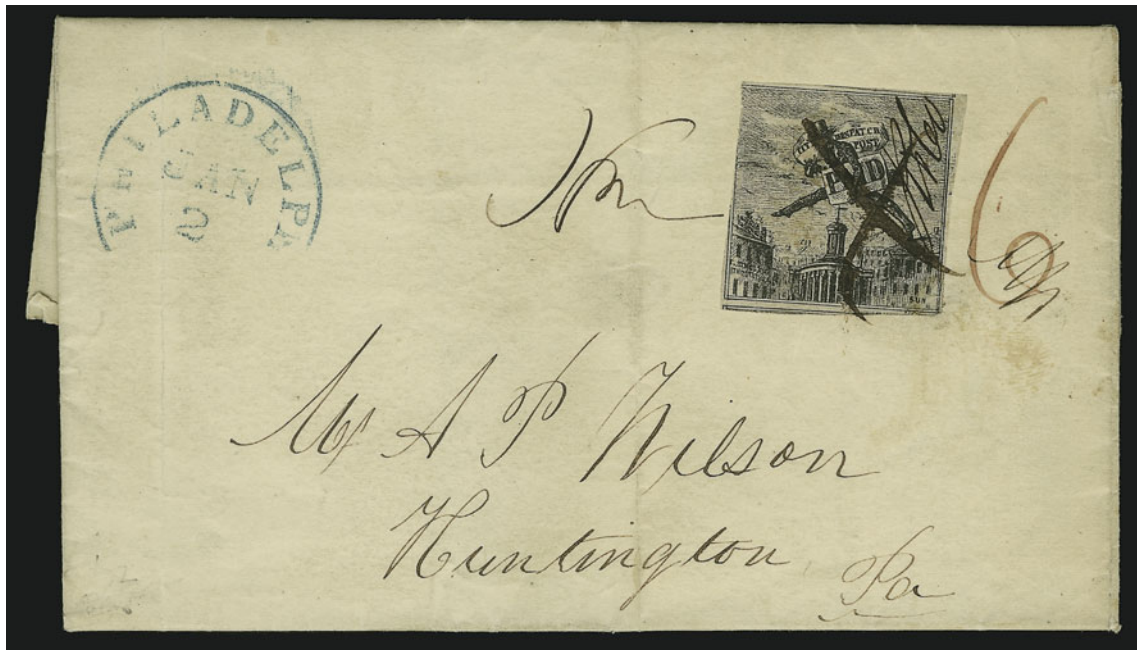 PHILADELPH
JAN
2
CITY DESPATCH
POST
PAID
6
SUN
Mr A P Wilson
Huntington
Pa